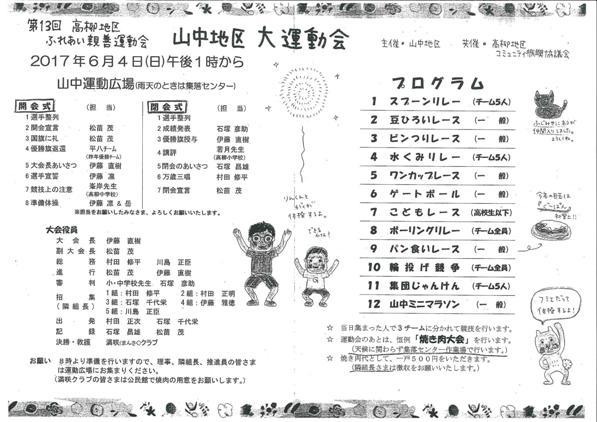 第13回 高柳地区
ふれあい親善運動会
山中地区 大運動会
主催・山中地区 共催・高柳地区
コミュニティ振興協議会
2017年6月4日(日)午後1時から
山中運動広場(雨天のときは集落センター)
開会式 (担当)
1 選手整列
2 開会宣言 松苗 茂
3 国旗に礼 松苗 茂
4 優勝旗返還 平八チーム
(昨年優勝チーム)
5 大会長あいさつ 伊藤 直樹
6 選手宣誓 伊藤 凛
7 競技上の注意 峯岸先生
(高柳中学校)
8 準備体操 伊藤 凛 & 岳
閉会式 (担当)
1 選手整列
2 成績発表 石塚 彦助
3 優勝旗授与 伊藤 直樹
4 講評 若月先生
(高柳小学校)
5 閉会のあいさつ 石塚 昌雄
6 万歳三唱 村田 修平
7 閉会宣言 松苗 茂
※担当をお願いしたみなさま、よろしくお願いいたします。
大会役員
大会長 伊藤 直樹
副大会長 松苗 茂
総務 村田 修平 川島 正臣
進行 松苗 茂 伊藤 直樹
審判 小・中学校先生 石塚 彦助
招集 1組:村田 修平 2組:村田 正明
(隣組長) 3組:石塚 千代栄 4組:伊藤 雅徳
5組:川島 正臣
出発 村田 正次 石塚 千代栄
記録 石塚 昌雄 松苗 茂
決勝・救護 満咲(まんさく)クラブ
お願い 8時より準備を行いますので、理事、隣組長、推進員の皆さま
は運動広場にお集まりください。
(満咲クラブの皆さまは公民館で焼肉の用意をお願いします。)
プログラム
1 スプーンリレー (チーム5人)
2 豆ひろいレース (一般)
3 ビンつりレース (一般)
4 水くみリレー (チーム5人)
5 ワンカップレース (一般)
6 ゲートボール (一般)
7 こどもレース (高校生以下)
8 ボーリングリレー (チーム全員)
9 パン食いレース (一般)
10 輪投げ競争 (チーム全員)
11 集団じゃんけん (チーム5人)
12 山中ミニマラソン (一般)
☆ 当日集まった人で3チームに分かれて競技を行います。
☆ 運動会のあとは、恒例「焼き肉大会」を行います。
(天候に関わらず集落センター作業場で行います。)
☆ 焼き肉代として、一戸500円をいただきます。
(隣組長さまは徴収をお願いいたします。)